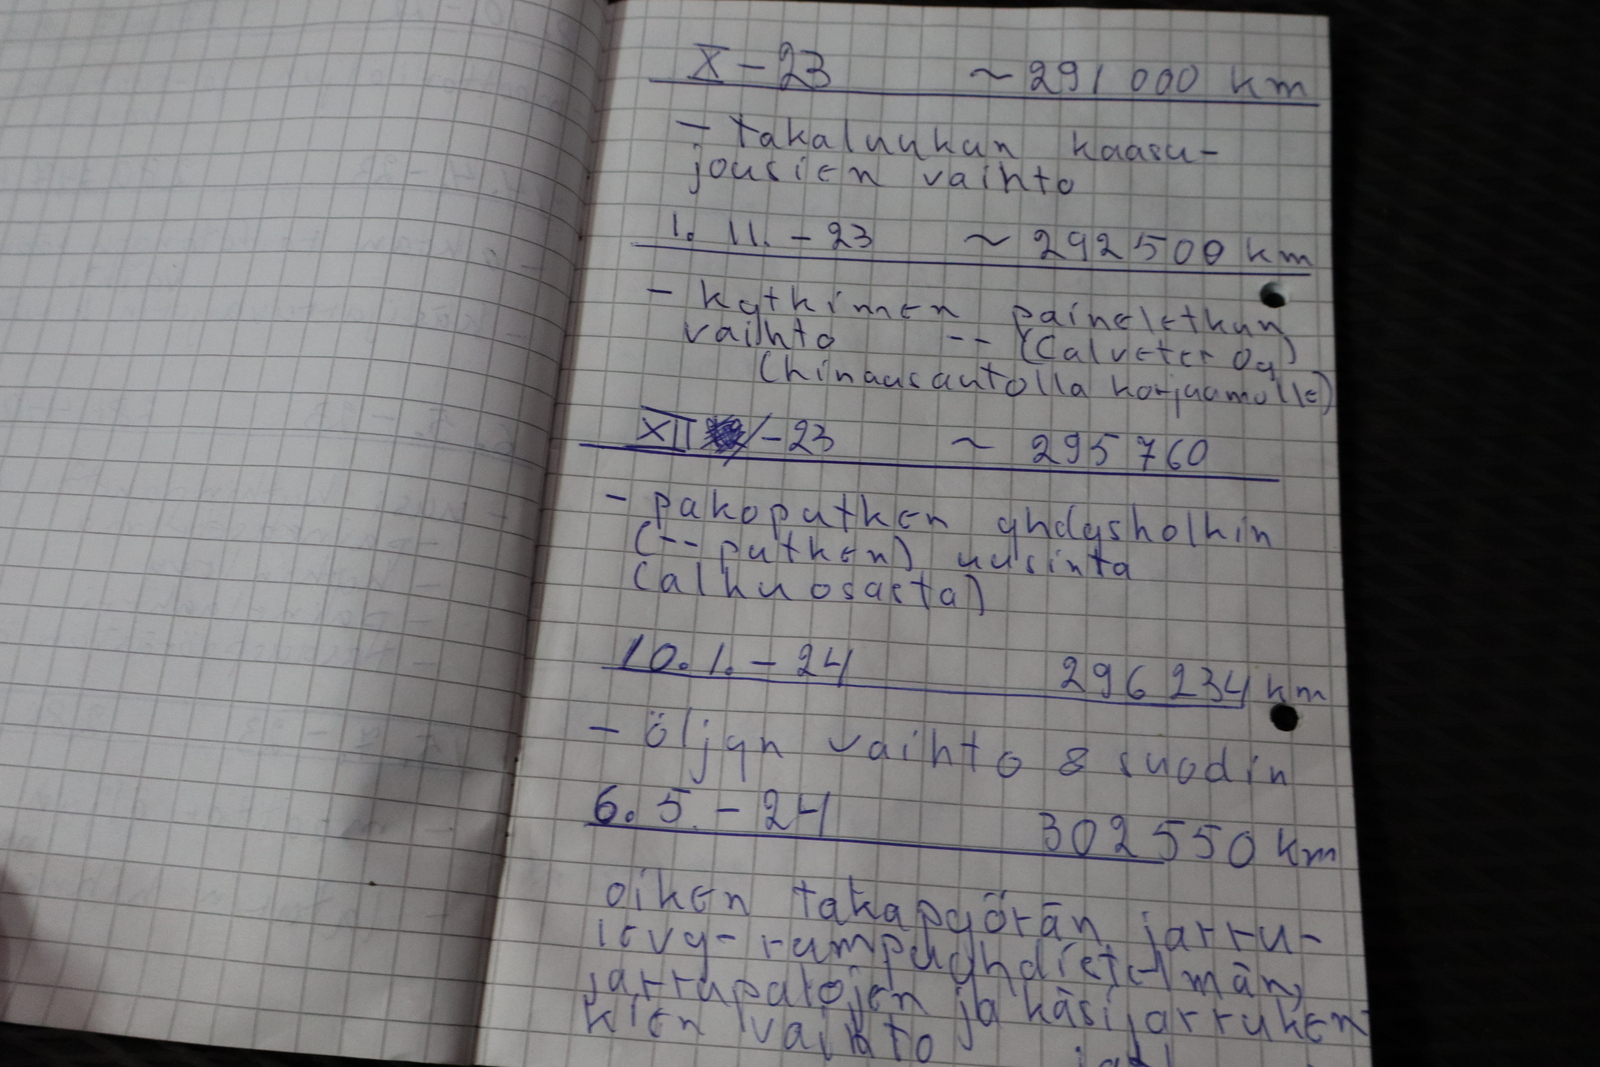 X - 23 ~ 291 000 km
- takaluukun kaasu-
jousien vaihto
1. 11. - 23 ~ 292500 km
- kytkimen paineletkun
vaihto -- (Calveter Oy)
(hinausautolla korjaamolle)
XII - 23 ~ 295 760
- pakoputken yhdysholkin
(-- putken) uusinta
(alkuosasta)
10. 1. - 24 296 234 km
- öljyn vaihto & suodin
6. 5. - 24 302 550 km
oiken takapyörän jarru-
levy- rumpuyhdistelmän,
jarrupalojen ja käsijarruken
kien vaihto